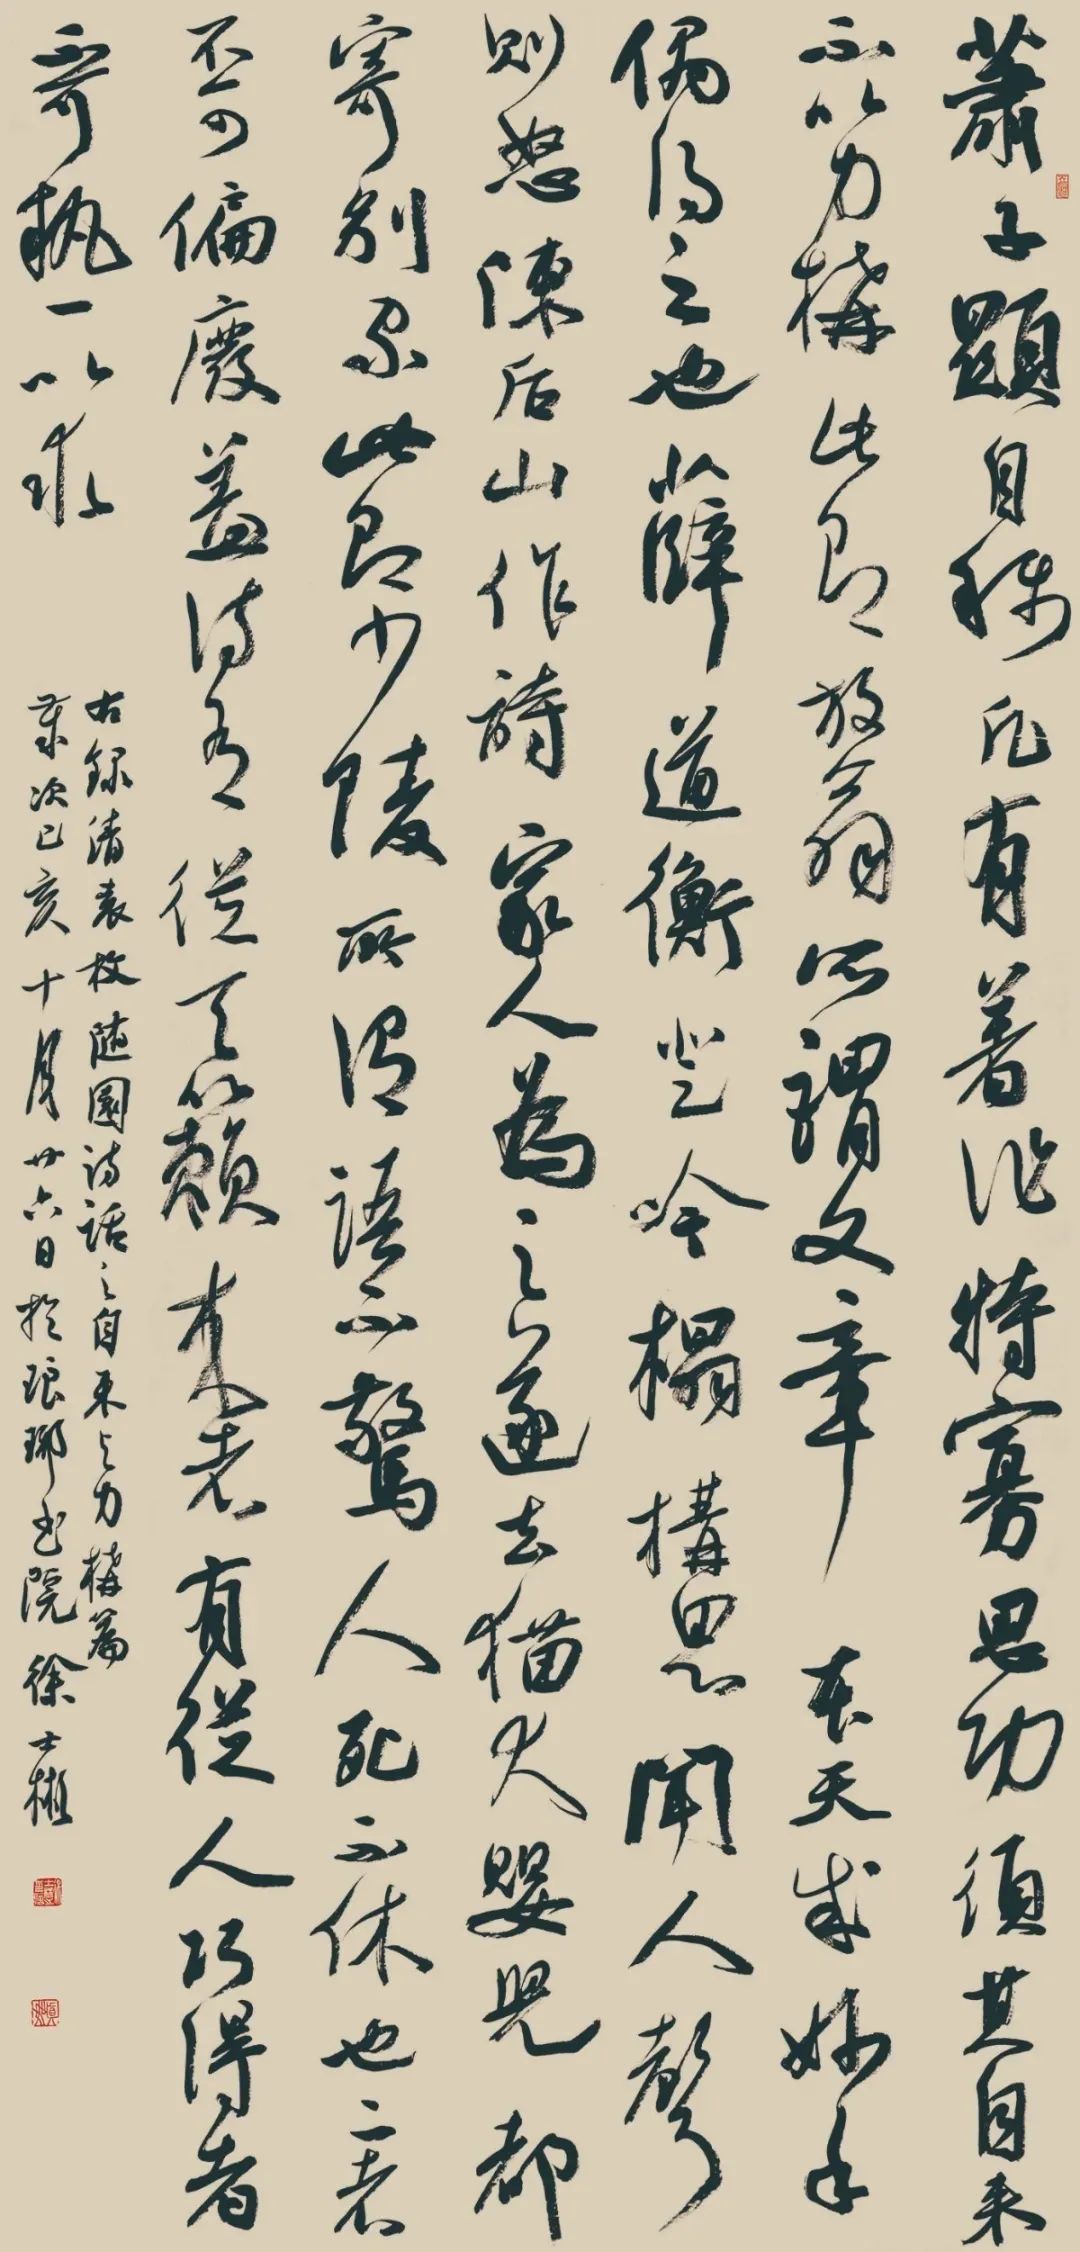 蕭子顯自稱凡有著作特寡思功須其自来
不以力構此即放翁所謂文章本天成妙手
偶得之也薛道衡登吟榻構思聞人聲
则怒陳后山作詩家人為之逐去猫犬嬰兒都
寄别家此即少陵所謂語不驚人死不休也二者
不可偏廢蓋诗有從天籟来者有從人巧得者
不可執一以求
右録清袁枚随園诗話之自来与力構篇
歲次己亥十月廿六日於琅琊书院徐士